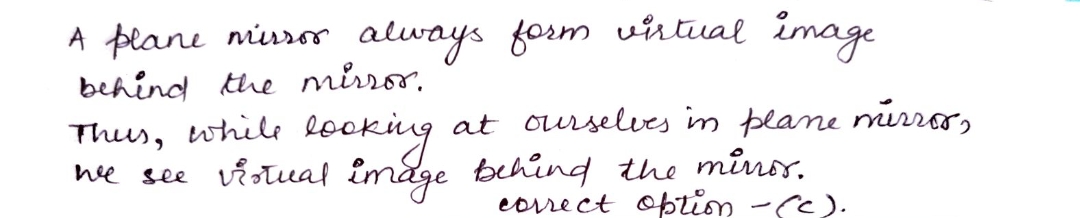 A plane mirror always form virtual image
behind the mirror.
Thus, while looking at ourselves in plane mirror,
we see virtual image behind the mirror.
correct option - (c).